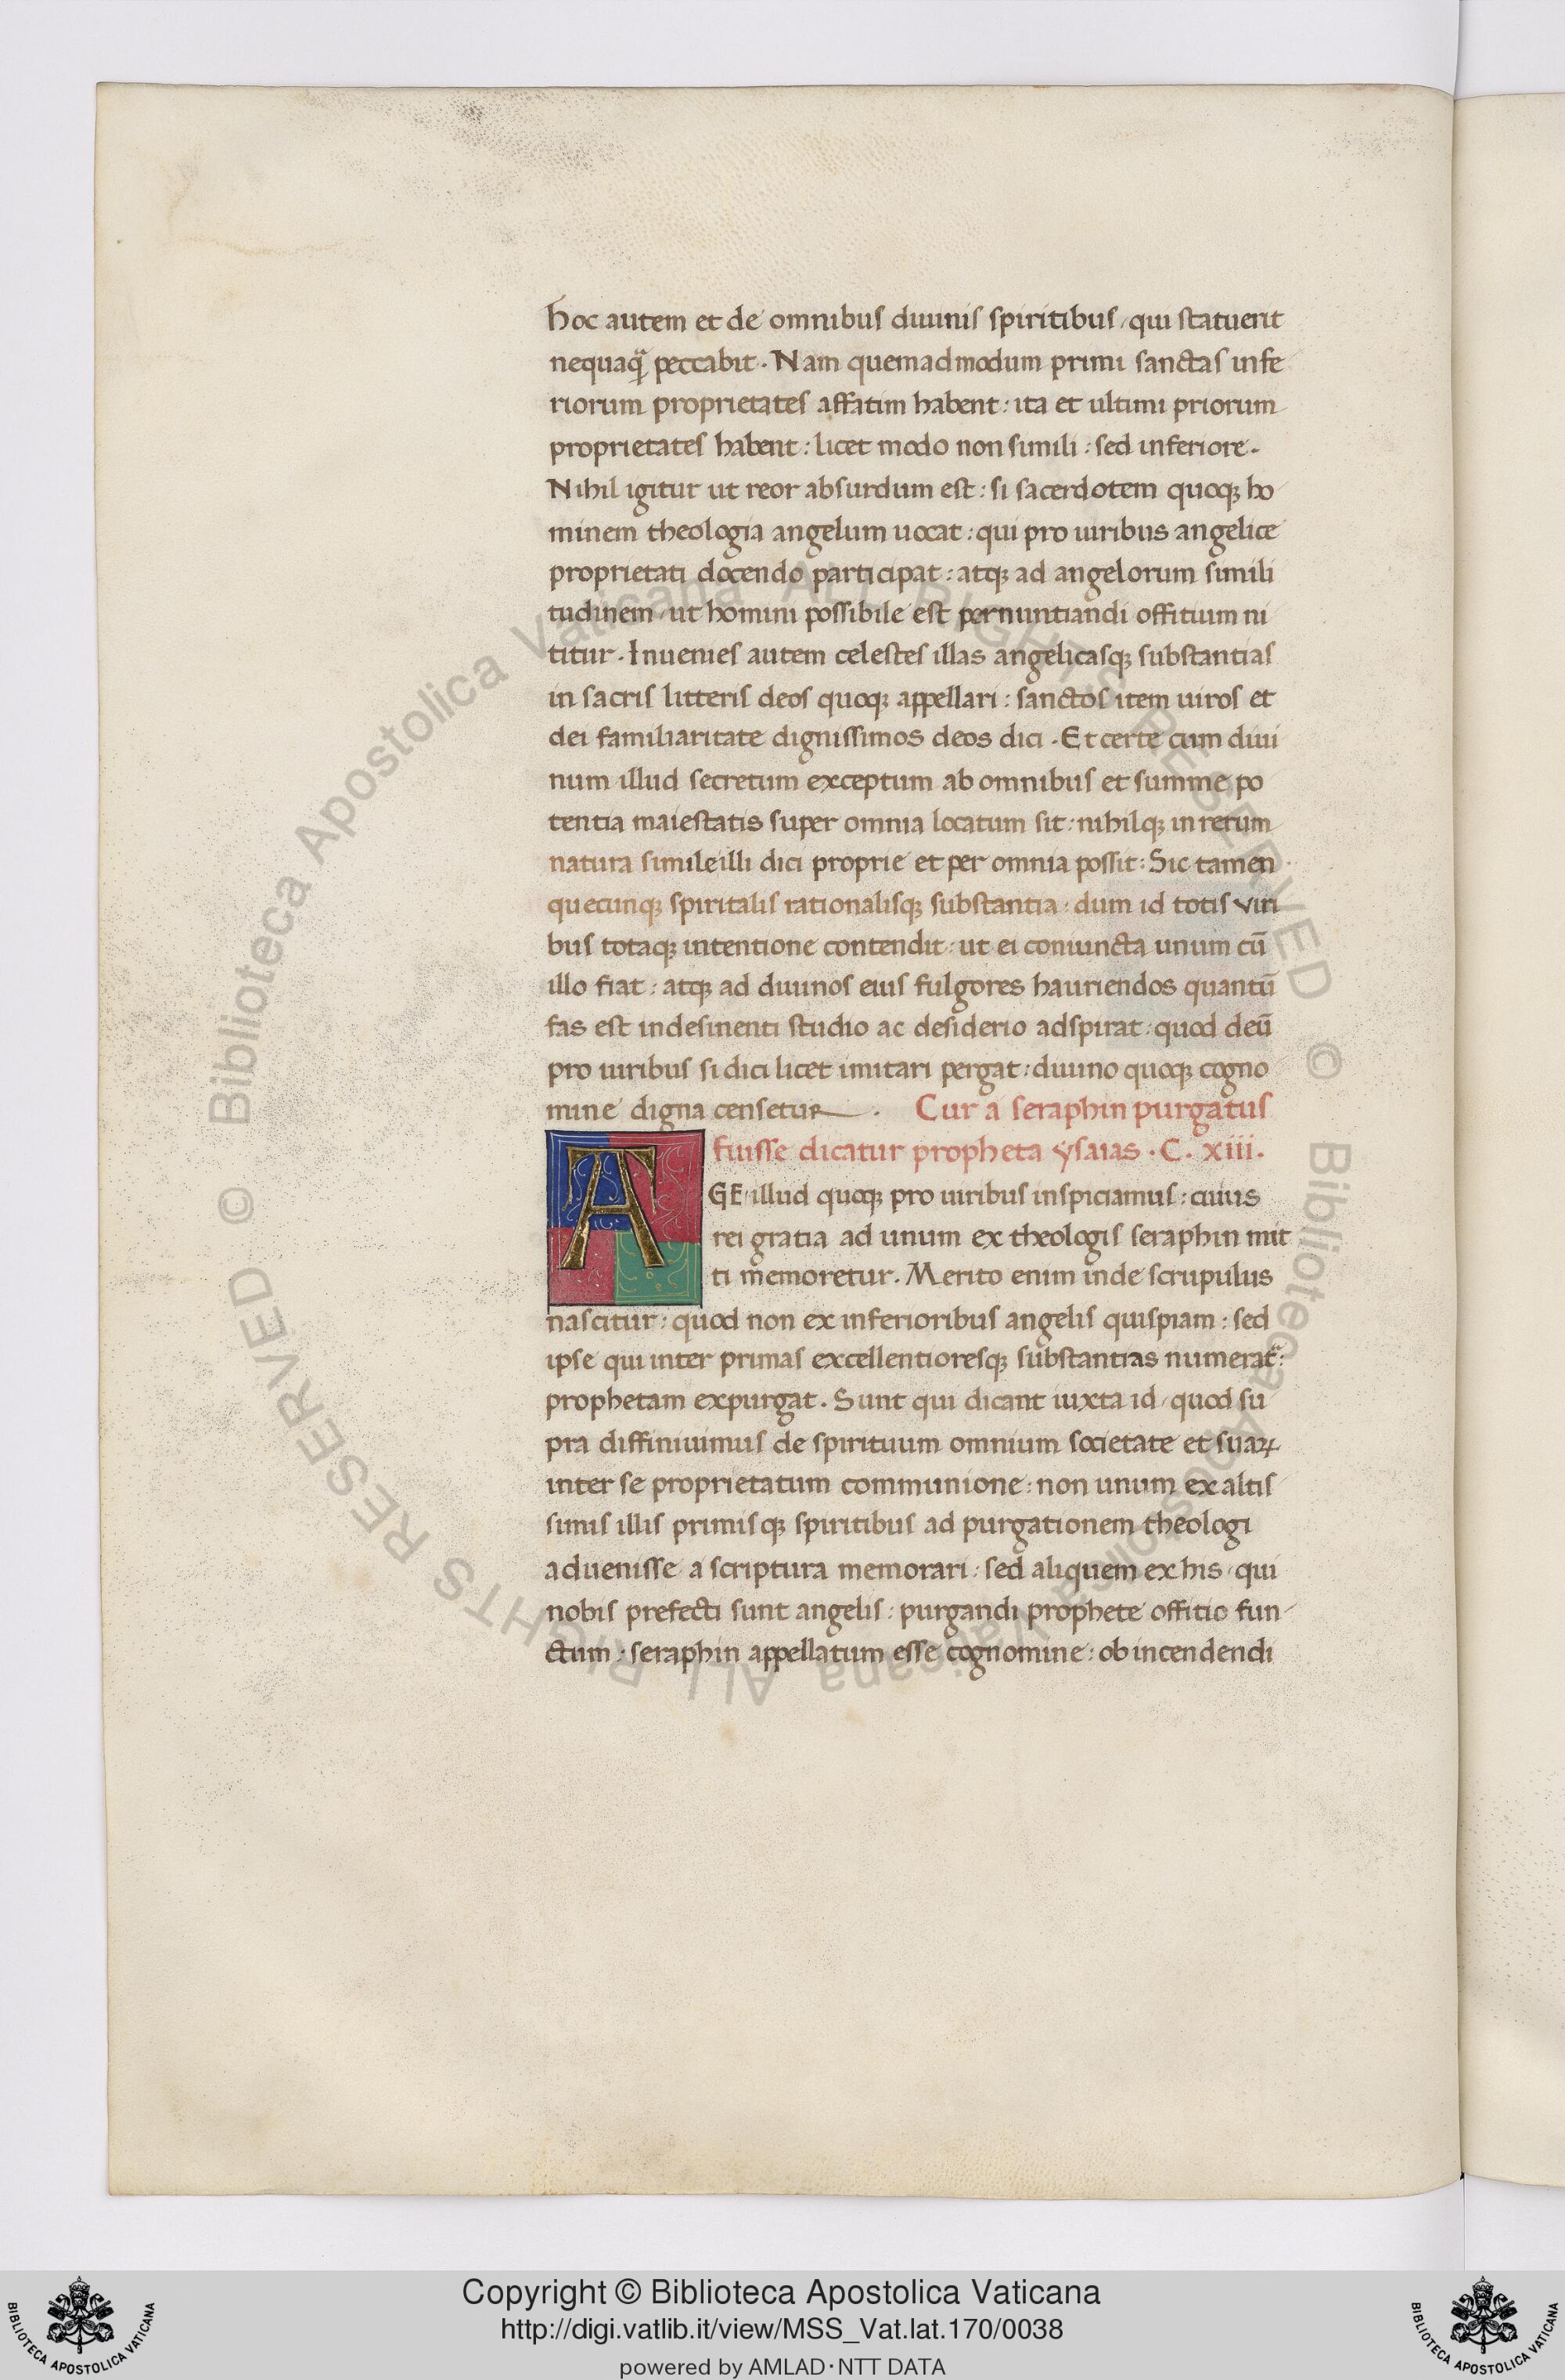 hoc autem et de omnibus diuinis spiritibus / qui statuerit
nequaqᷓ peccabit. Nam quemadmodum primi sanctas infe
riorum proprietates affatim habent: ita et ultimi priorum
proprietates habent: licet modo non simili: sed inferiore.
Nihil igitur ut reor absurdum est: si sacerdotem quoqꝫ ho
minem theologia angelum uocat: qui pro uiribus angelice
proprietati docendo participat: atqꝫ ad angelorum simili
tudinem / ut homini possibile est pernuntiandi offitium ni
titur. Inuenies autem celestes illas angelicasqꝫ substantias
in sacris litteris deos quoqꝫ appellari: sanctos item uiros et
dei familiaritate dignissimos deos dici. Et certe cum diui
num illud secretum exceptum ab omnibus et summe po
tentia maiestatis super omnia locatum sit: nihilqꝫ in rerum
natura simile illi dici proprie et per omnia possit: Sic tamen
quecunqꝫ spiritalis rationalisqꝫ substantia: dum id totis viri
bus totaqꝫ intentione contendit: ut ei coniuncta unum cū
illo fiat: atqꝫ ad diuinos eius fulgores hauriendos quantū
fas est indesinenti studio ac desiderio adspirat: quod deū
pro uiribus si dici licet imitari pergat: diuino quoqꝫ cogno
mine digna censetur. Cur a seraphin purgatus
fuisse dicatur propheta ysaias. C. xiii.
AGE / illud quoqꝫ pro uiribus inspiciamus: cuius
rei gratia ad unum ex theologis seraphin mit
ti memoretur. Merito enim inde scrupulus
nascitur: quod non ex inferioribus angelis quispiam: sed
ipse qui inter primas excellentioresqꝫ substantias numerat᷑:
prophetam expurgat. Sunt qui dicant iuxta id / quod su
pra diffiniuimus de spirituum omnium societate et suaꝝ
inter se proprietatum communione: non unum ex altis
simis illis primisqꝫ spiritibus ad purgationem theologi
aduenisse a scriptura memorari: sed aliquem ex his / qui
nobis prefecti sunt angelis: purgandi prophete offitio fun
ctum: seraphin appellatum esse cognomine: ob incendendi
© Biblioteca Apostolica Vaticana ALL RIGHTS RESERVED © Biblioteca Apostolica Vaticana ALL RIGHTS RESERVED
Copyright © Biblioteca Apostolica Vaticana
http://digi.vatlib.it/view/MSS_Vat.lat.170/0038
powered by AMLAD·NTT DATA
BIBLIOTECA APOSTOLICA VATICANA
BIBLIOTECA APOSTOLICA VATICANA